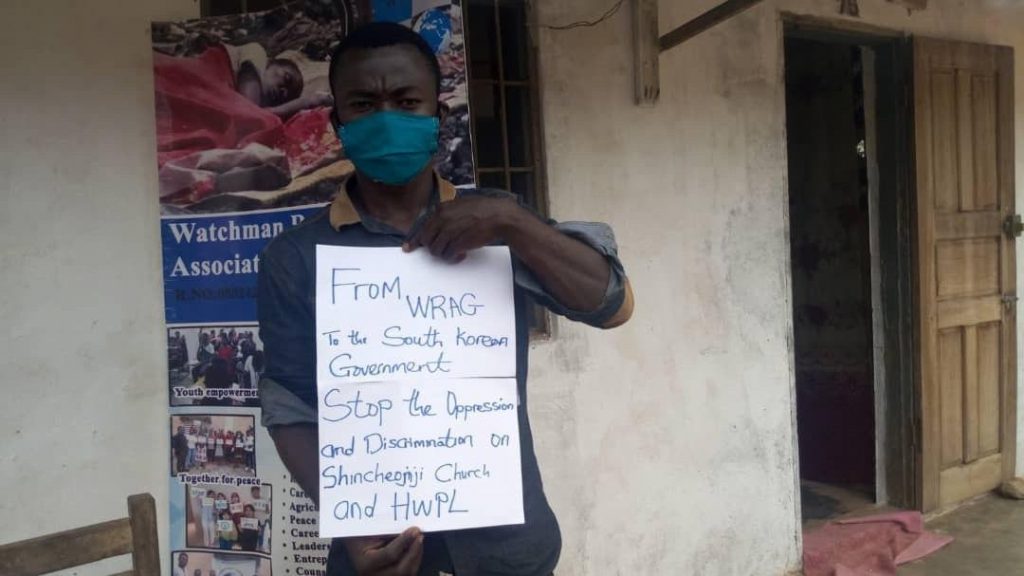 Watchman
Associat
Youth empowerme
Together for peace
Agric
Peace
Caree
Leader
Entrep
Couns
From WRAG
To the South Korean
Government
Stop the Oppression
and Discrimnation on
Shincheonji Church
and HWPL